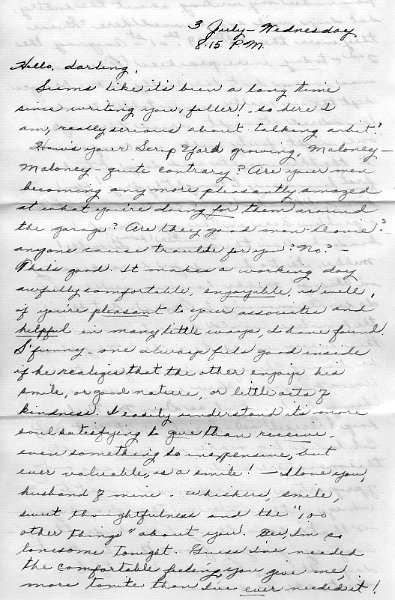 3 July - Wednesday
8:15 P.M.
Hello, darling,
Seems like it's been a long time
since writing you, fuller! so here I
am, really serious about talking a bit!
How's your Scrip Yard growing, Maloney -
Maloney - quite contrary? Are your men
becoming any more pleasantly amazed
at what you're doing for them around
the garage? Are they good men Leonie?
anyone cause trouble for you? No? -
That's good. It makes a working day
awfully comfortable, enjoyable, as well,
if you're pleasant to your associates and
helpful in many little ways, to some friend.
S'funny - one always feels good inside
if he realizes that the other enjoys his
smile, or good nature, or little acts of
kindness. I easily understand it's more
soul satisfying to give than receive.
even something so inexpensive, but
ever valuable, as a smile! - I love you,
husband of mine. whiskers, smile,
sweet thoughtfulness and the "100
other things" about you. Gee, I'm so
lonesome tonight. Guess I've needed
the comfortable feeling you give me,
more tonite than I've ever needed it!